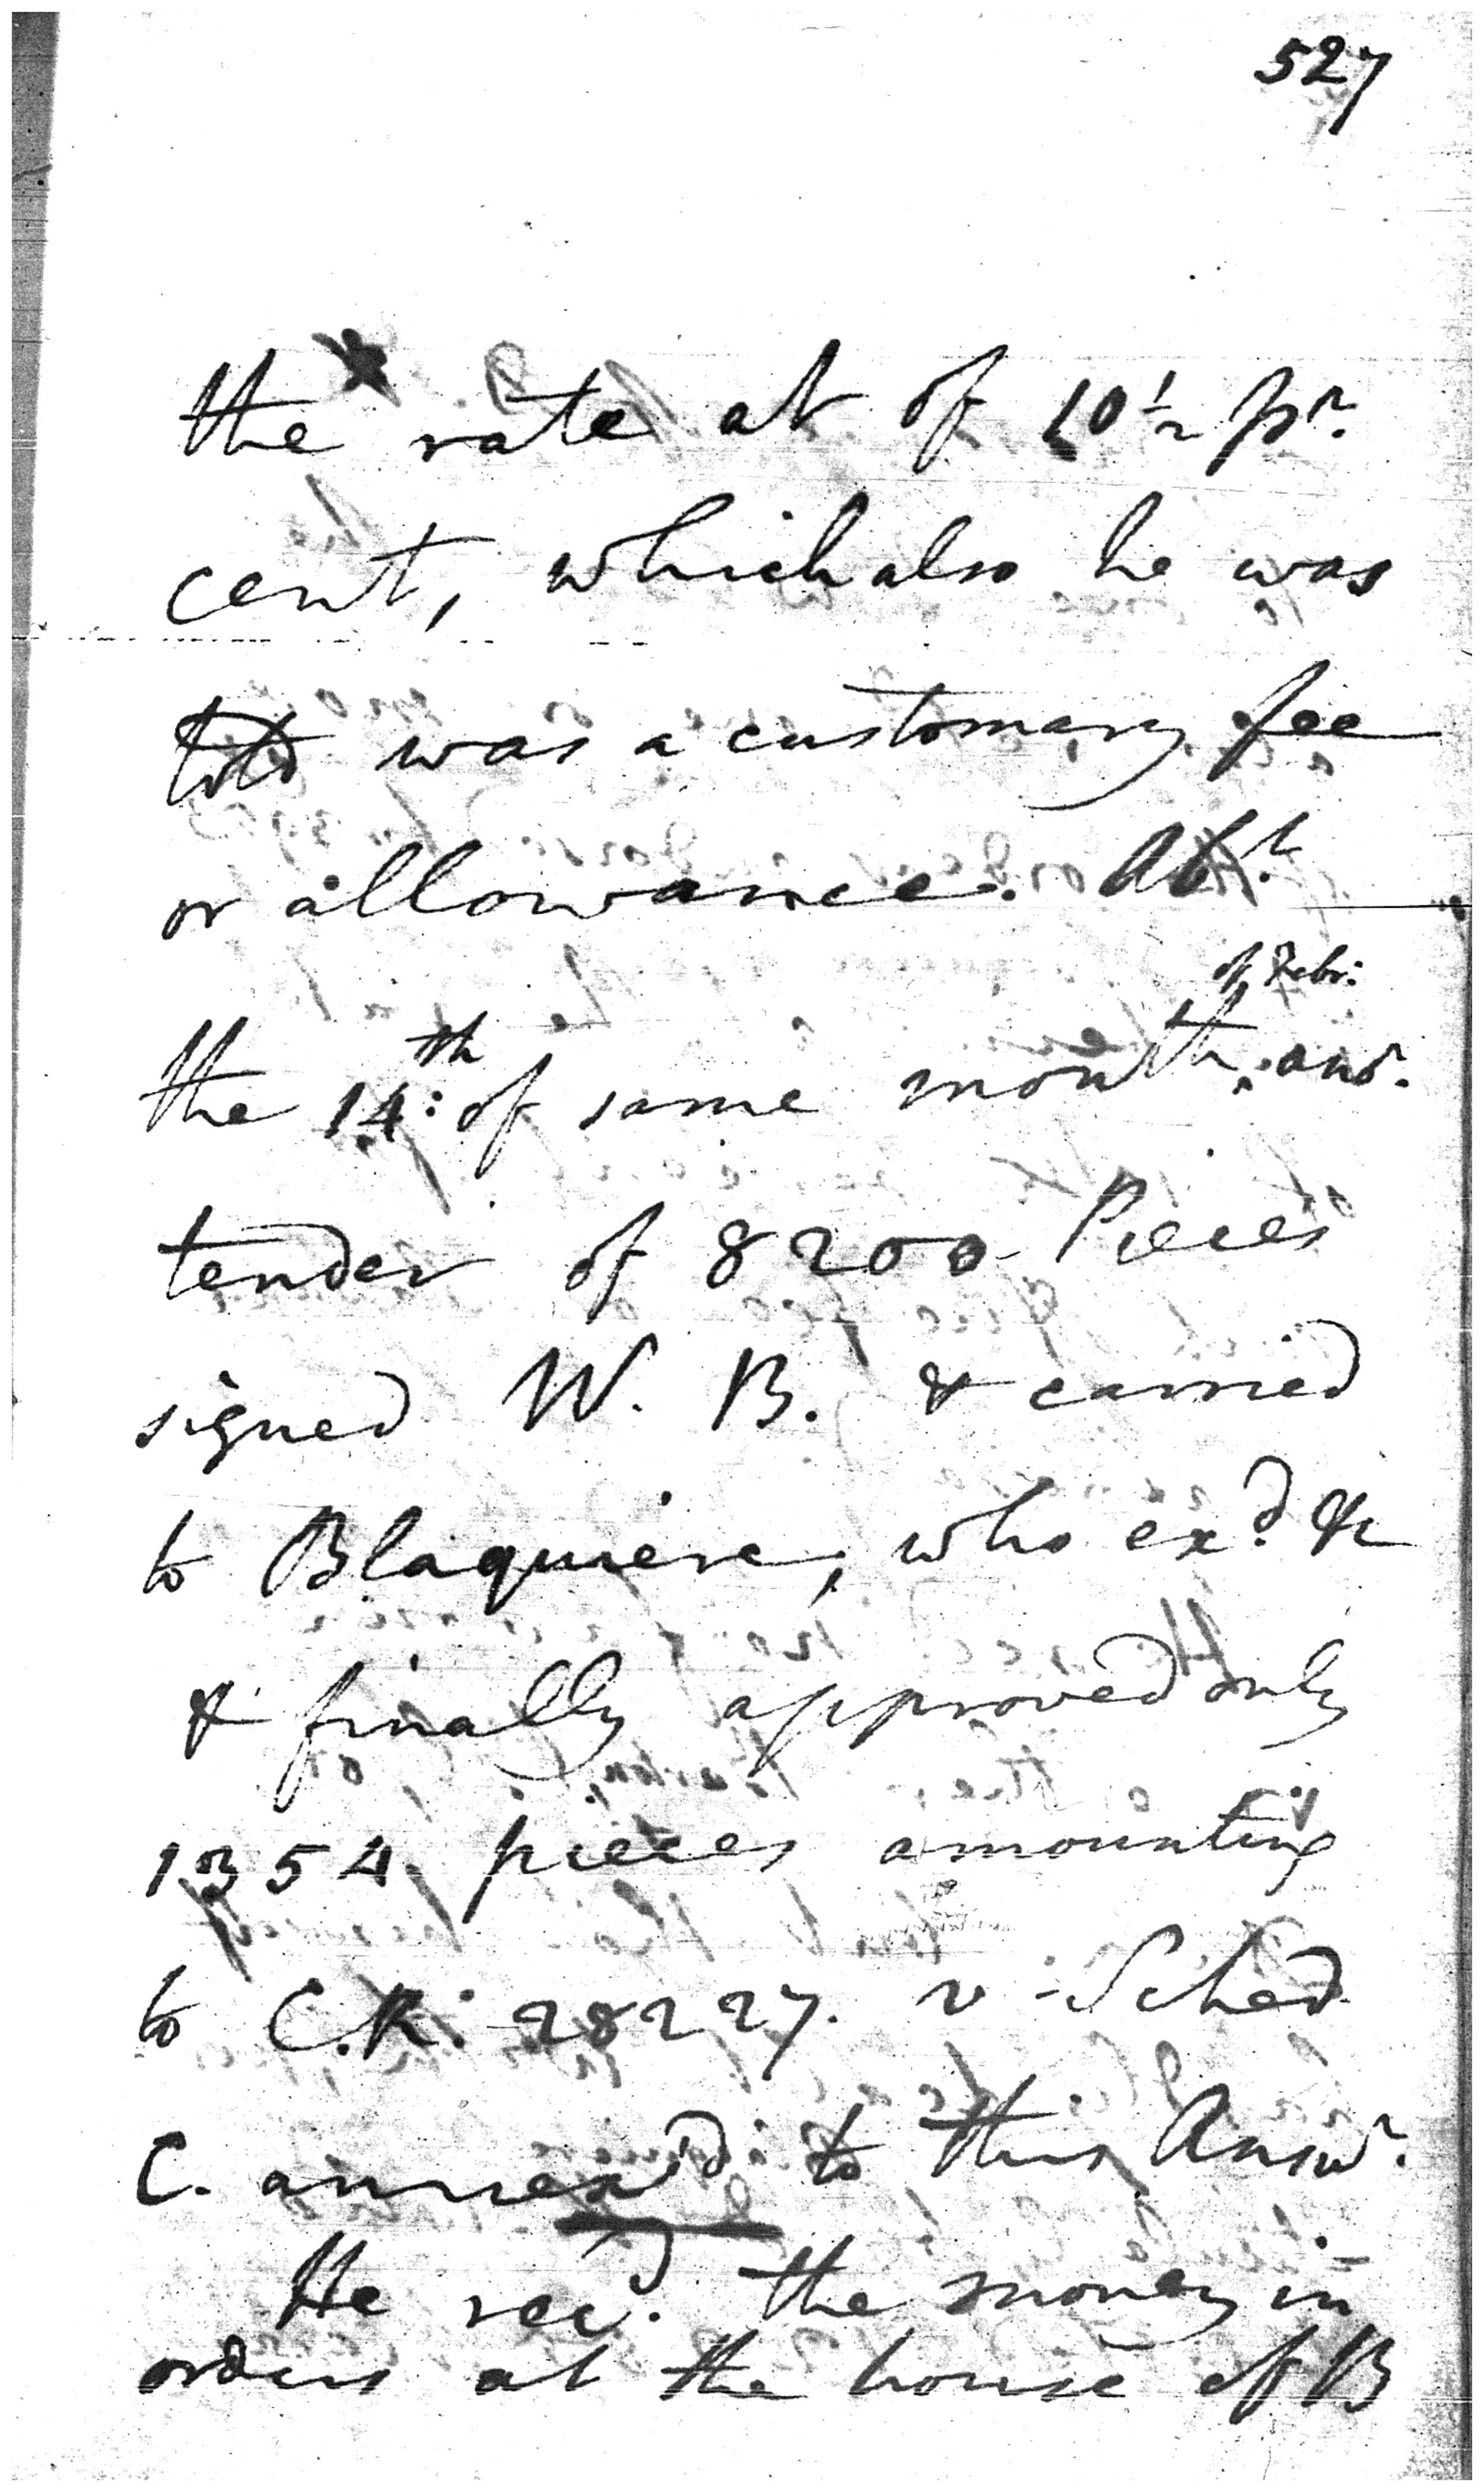 527
the rate at of 10½ pr.
cent, which also he was
told was a customary fee
or allowance. Abt.
of Febr:
the 14:th of same month, anr.
tender of 8200 Pieces
signed W. B. & carried
to Blaquiere, who exd. &
& finally approved only
1354 pieces amounting
to C.R: 28227. v Sched
C. annex'd to this Answr.
He recd. the money in
orders at the house of B